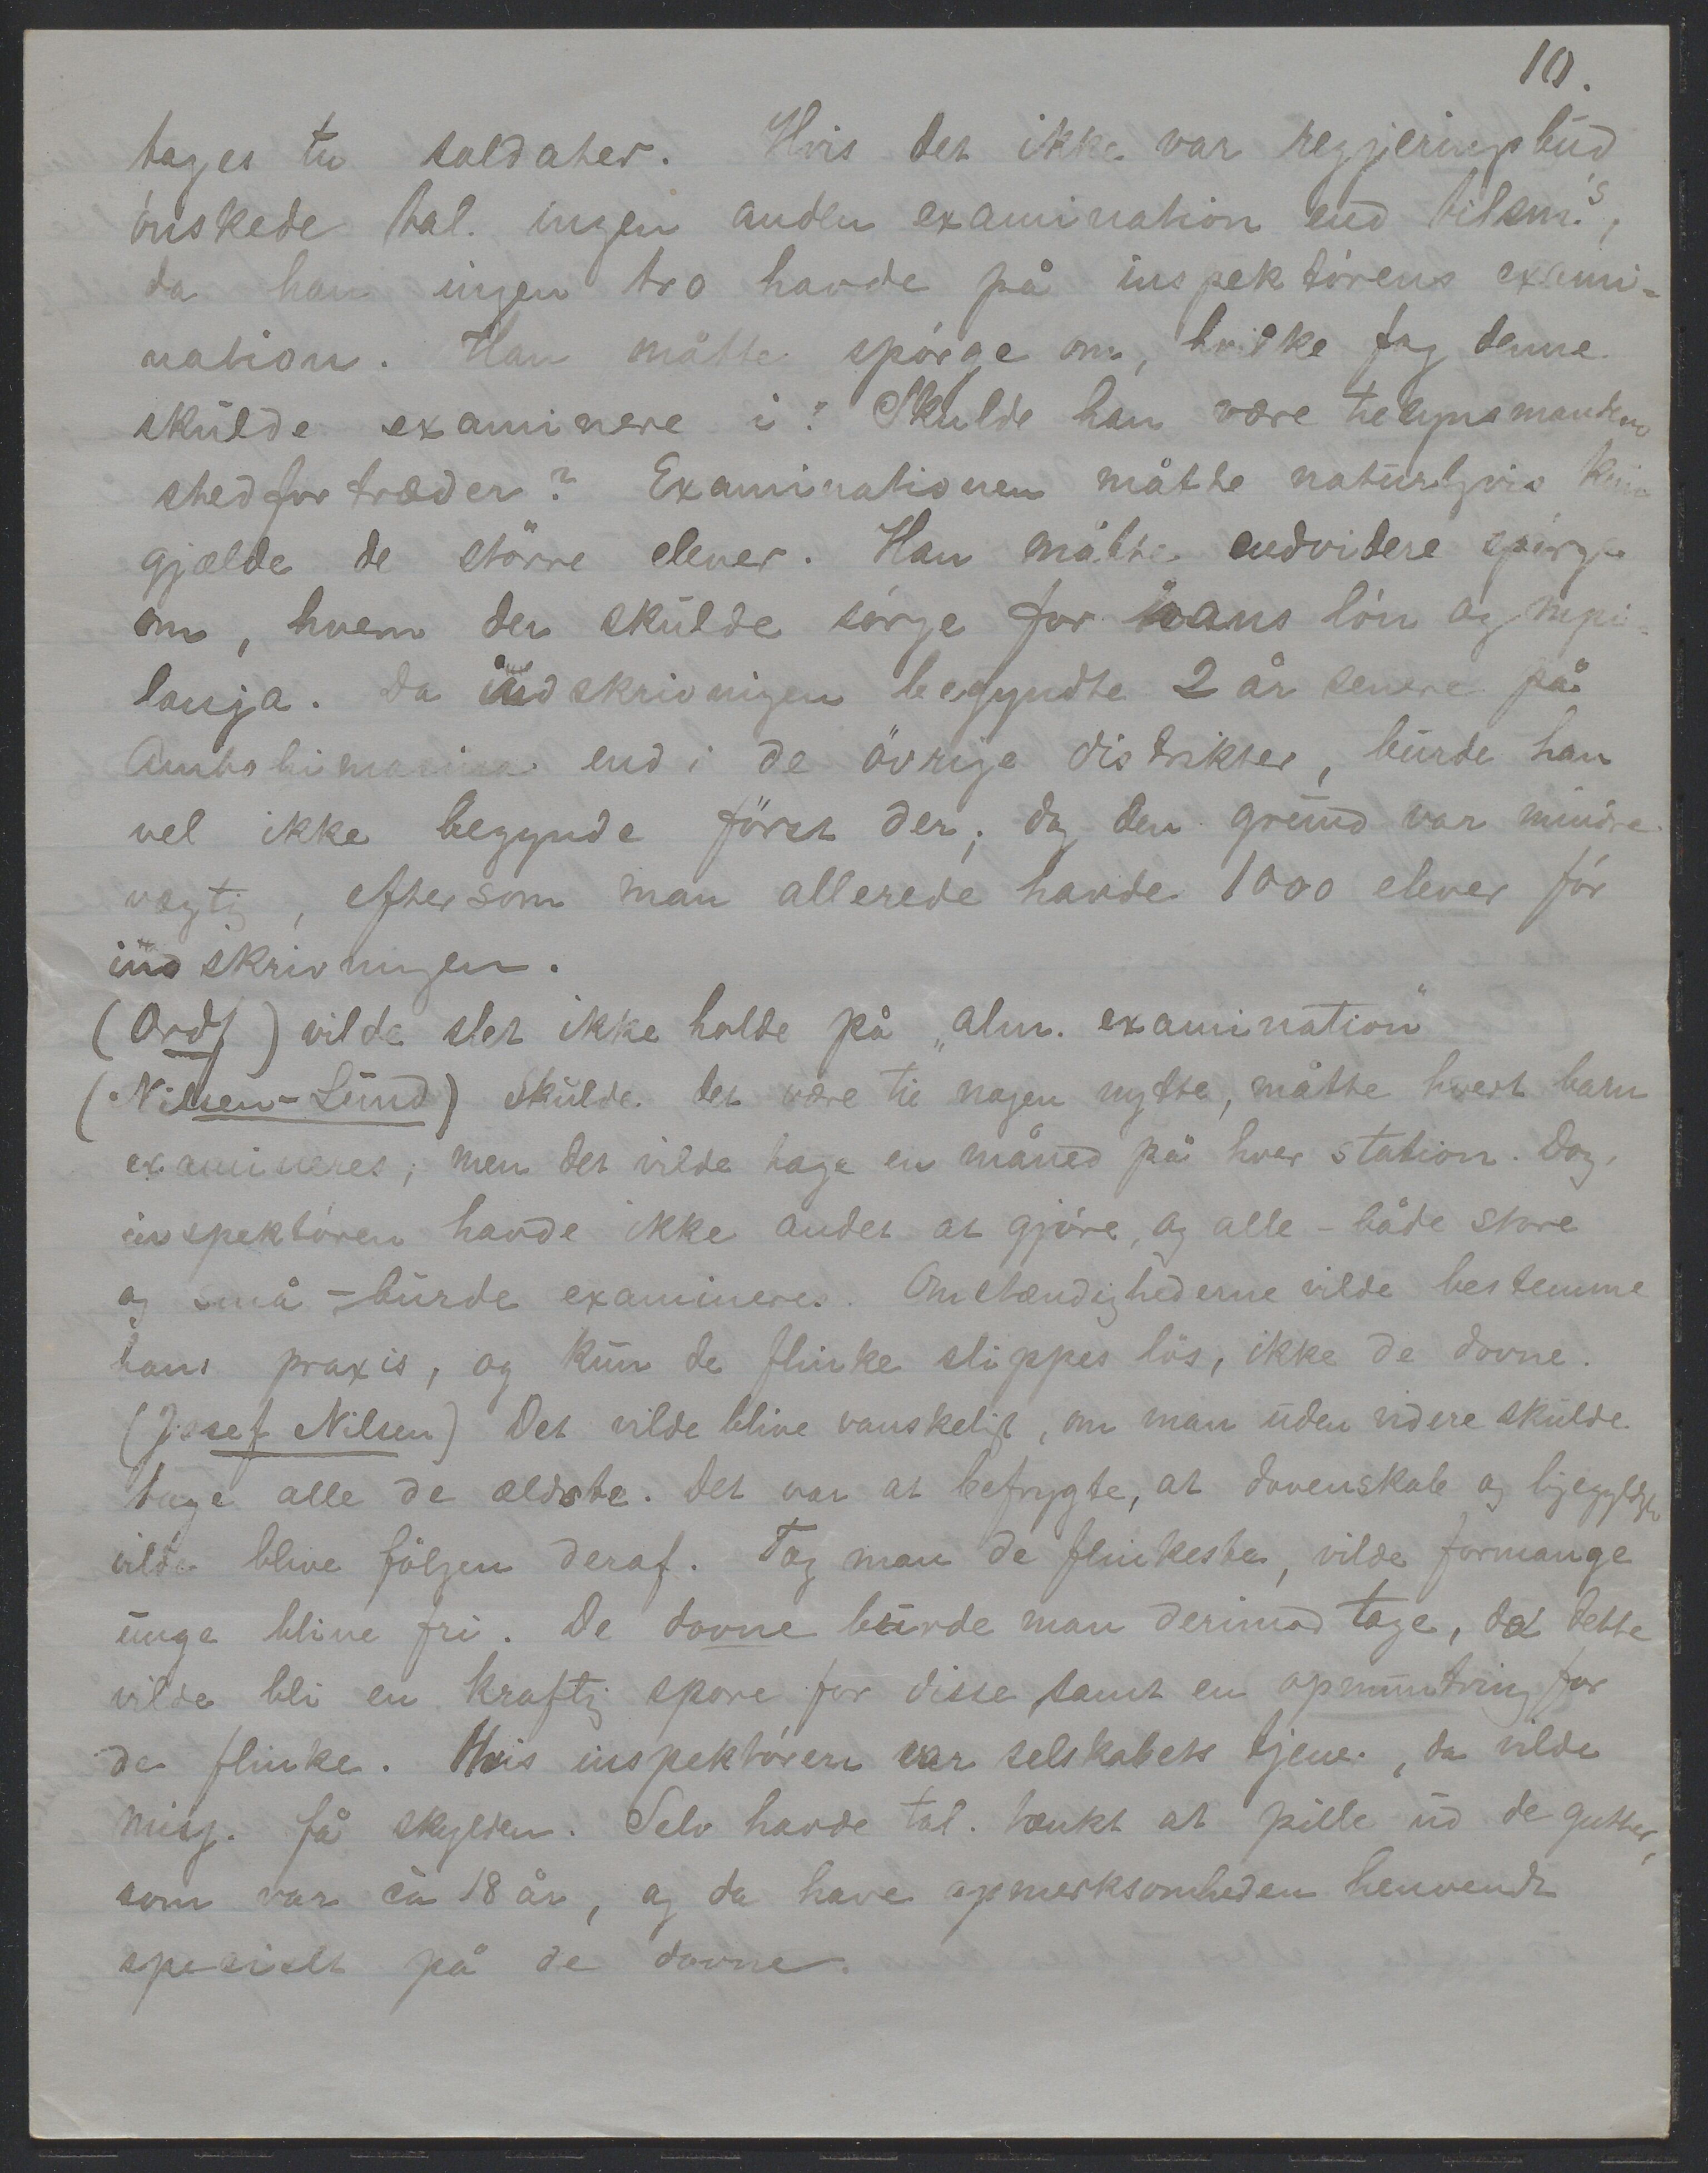 10.
tages til soldater. Hvis det ikke var regjeringsbud
ønskede tal. ingen anden examination end tilsm.s,
da han ingen tro havde på inspektørens exami-
nation. Han måtte spørge om, hvilke fag denne
skulde examinere i? Skulde han være tilsynsmandens
stedfortræder? Examinationen måtte naturligvis kun
gjælde de større elever. Han måtte endvidere spørge
om, hvem der skulde sørge for hans løn og mpi-
lanja. Da indskrivningen begyndte 2 år senere på
Ambohimasina end i de øvrige distrikter, burde han
vel ikke begynde først der; dog den grund var mindre
vægtig, eftersom man allerede havde 1000 elever før
indskrivningen.
(Ordf) vilde slet ikke holde på „alm. examination"
(Nilsen-Lund) Skulde det være til nogen nytte, måtte hvert barn
examineres; men det vilde tage en måned på hver station. Dog,
inspektøren havde ikke andet at gjøre, og alle - både store
og små - burde examineres. Omstændighederne vilde bestemme
hans praxis, og kun de flinke slippes løs, ikke de dovne.
(Josef Nilsen) Det vilde blive vanskeligt, om man uden videre skulde
tage alle de ældste. Det var at befrygte, at dovenskab og ligegyldighed
vilde blive følgen deraf. Tog man de flinkeste, vilde formange
unge blive fri. De dovne burde man derimod tage, da dette
vilde bli en kraftig spore for disse samt en opmuntring for
de flinke. Hvis inspektøren var selskabets tjener, da vilde
misj. få skylden. Selv havde tal. tænkt at pille ud de gutter,
som var ca 18 år, og da have opmerksomheden henvendt
specielt på de dovne.